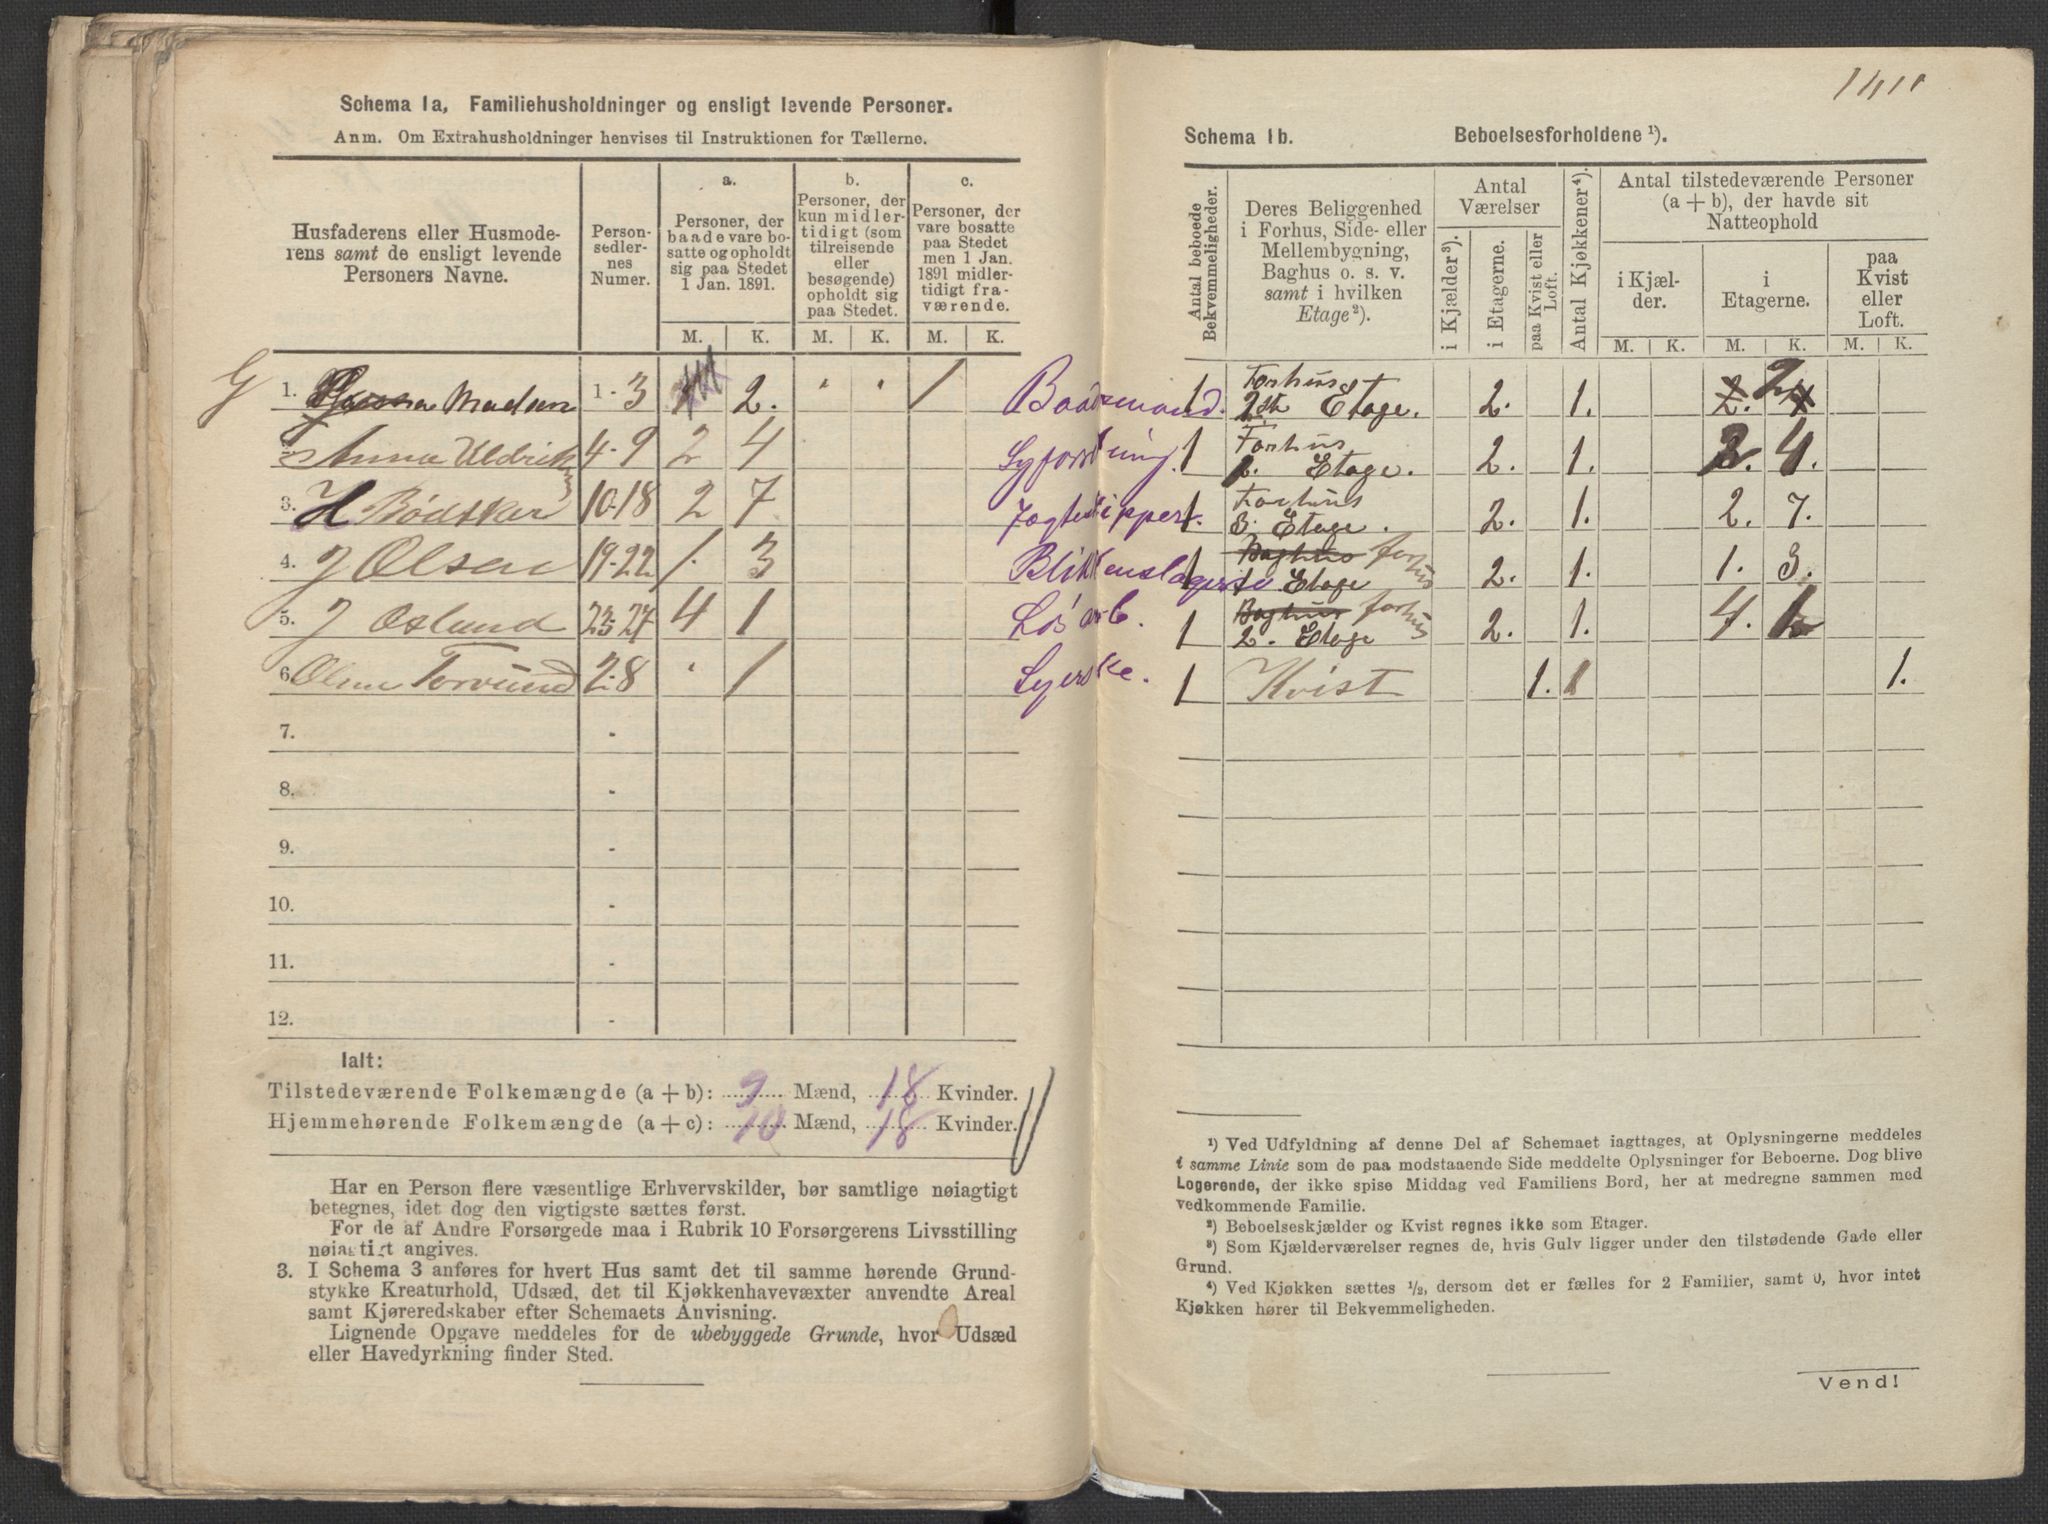 Schema 1a, Familiehusholdninger og ensligt levende Personer.
Anm. Om Extrahusholdninger henvises til Instruktionen for Tællerne.
Husfaderens eller Husmoderens samt de ensligt levende Personers Navne.
Person-sedler-nes Numer.
a. Personer, der baade vare bosatte og opholdt sig paa Stedet 1 Jan. 1891.
b. Personer, der kun midlertidigt (som tilreisende eller besøgende) opholdt sig paa Stedet.
c. Personer, der vare bosatte paa Stedet men 1 Jan. 1891 midlertidigt fraværende.
M. K. M. K. M. K.
G 1. Madsen 1-3 2. 1 Baadsmand.
2. Anna Uldrik 4-9 2 4
3. H Bødtker 10-18 2 7
4. J Olsen 19-22 1 3
5. J Oslund 23-27 4 1 Løsarb.
6. Olina Torvund 28 1 Syerske.
7. -
8. -
9. -
10. -
11. -
12. -
Ialt:
Tilstedeværende Folkemængde (a + b): 9 Mænd, 18 Kvinder.
Hjemmehørende Folkemængde (a + c): 10 Mænd, 18 Kvinder.
Har en Person flere væsentlige Erhvervskilder, bør samtlige nøiagtigt
betegnes, idet dog den vigtigste sættes først.
For de af Andre Forsørgede maa i Rubrik 10 Forsørgerens Livsstilling
nøiagtigt angives.
3. I Schema 3 anføres for hvert Hus samt det til samme hørende Grund-
stykke Kreaturhold, Udsæd, det til Kjøkkenhavevæxter anvendte Areal
samt Kjøreredskaber efter Schemaets Anvisning.
Lignende Opgave meddeles for de ubebyggede Grunde, hvor Udsæd
eller Havedyrkning finder Sted.
Schema 1b. Beboelsesforholdene ¹).
Antal beboede Bekvemmeligheder.
Deres Beliggenhed i Forhus, Side- eller Mellembygning, Baghus o. s. v. samt i hvilken Etage²).
Antal Værelser
i Kjælder³).
i Etagerne.
paa Kvist eller Loft.
Antal Kjøkkener⁴).
Antal tilstedeværende Personer (a + b), der havde sit Natteophold
i Kjælder.
i Etagerne.
paa Kvist eller Loft.
M. K. M. K. M. K.
1 Forhus
Etage. 2. 1. 2.
1 Forhus
Etage. 2. 1. 4.
1 Forhus
3. Etage. 2. 1. 2. 7.
1 Baghus forhus
Etage 2. 1. 1. 3.
1 Baghus forhus
2. Etage 2. 1. 4. 1
1 Kvist 1. 1 1.
¹) Ved Udfyldning af denne Del af Schemaet iagttages, at Oplysningerne meddeles
i samme Linie som de paa modstaaende Side meddelte Oplysninger for Beboerne. Dog blive
Logerende, der ikke spise Middag ved Familiens Bord, her at medregne sammen med
vedkommende Familie.
²) Beboelseskjælder og Kvist regnes ikke som Etager.
³) Som Kjælderværelser regnes de, hvis Gulv ligger under den tilstødende Gade eller
Grund.
⁴) Ved Kjøkken sættes ½, dersom det er fælles for 2 Familier, samt 0, hvor intet
Kjøkken hører til Bekvemmeligheden.
Vend!